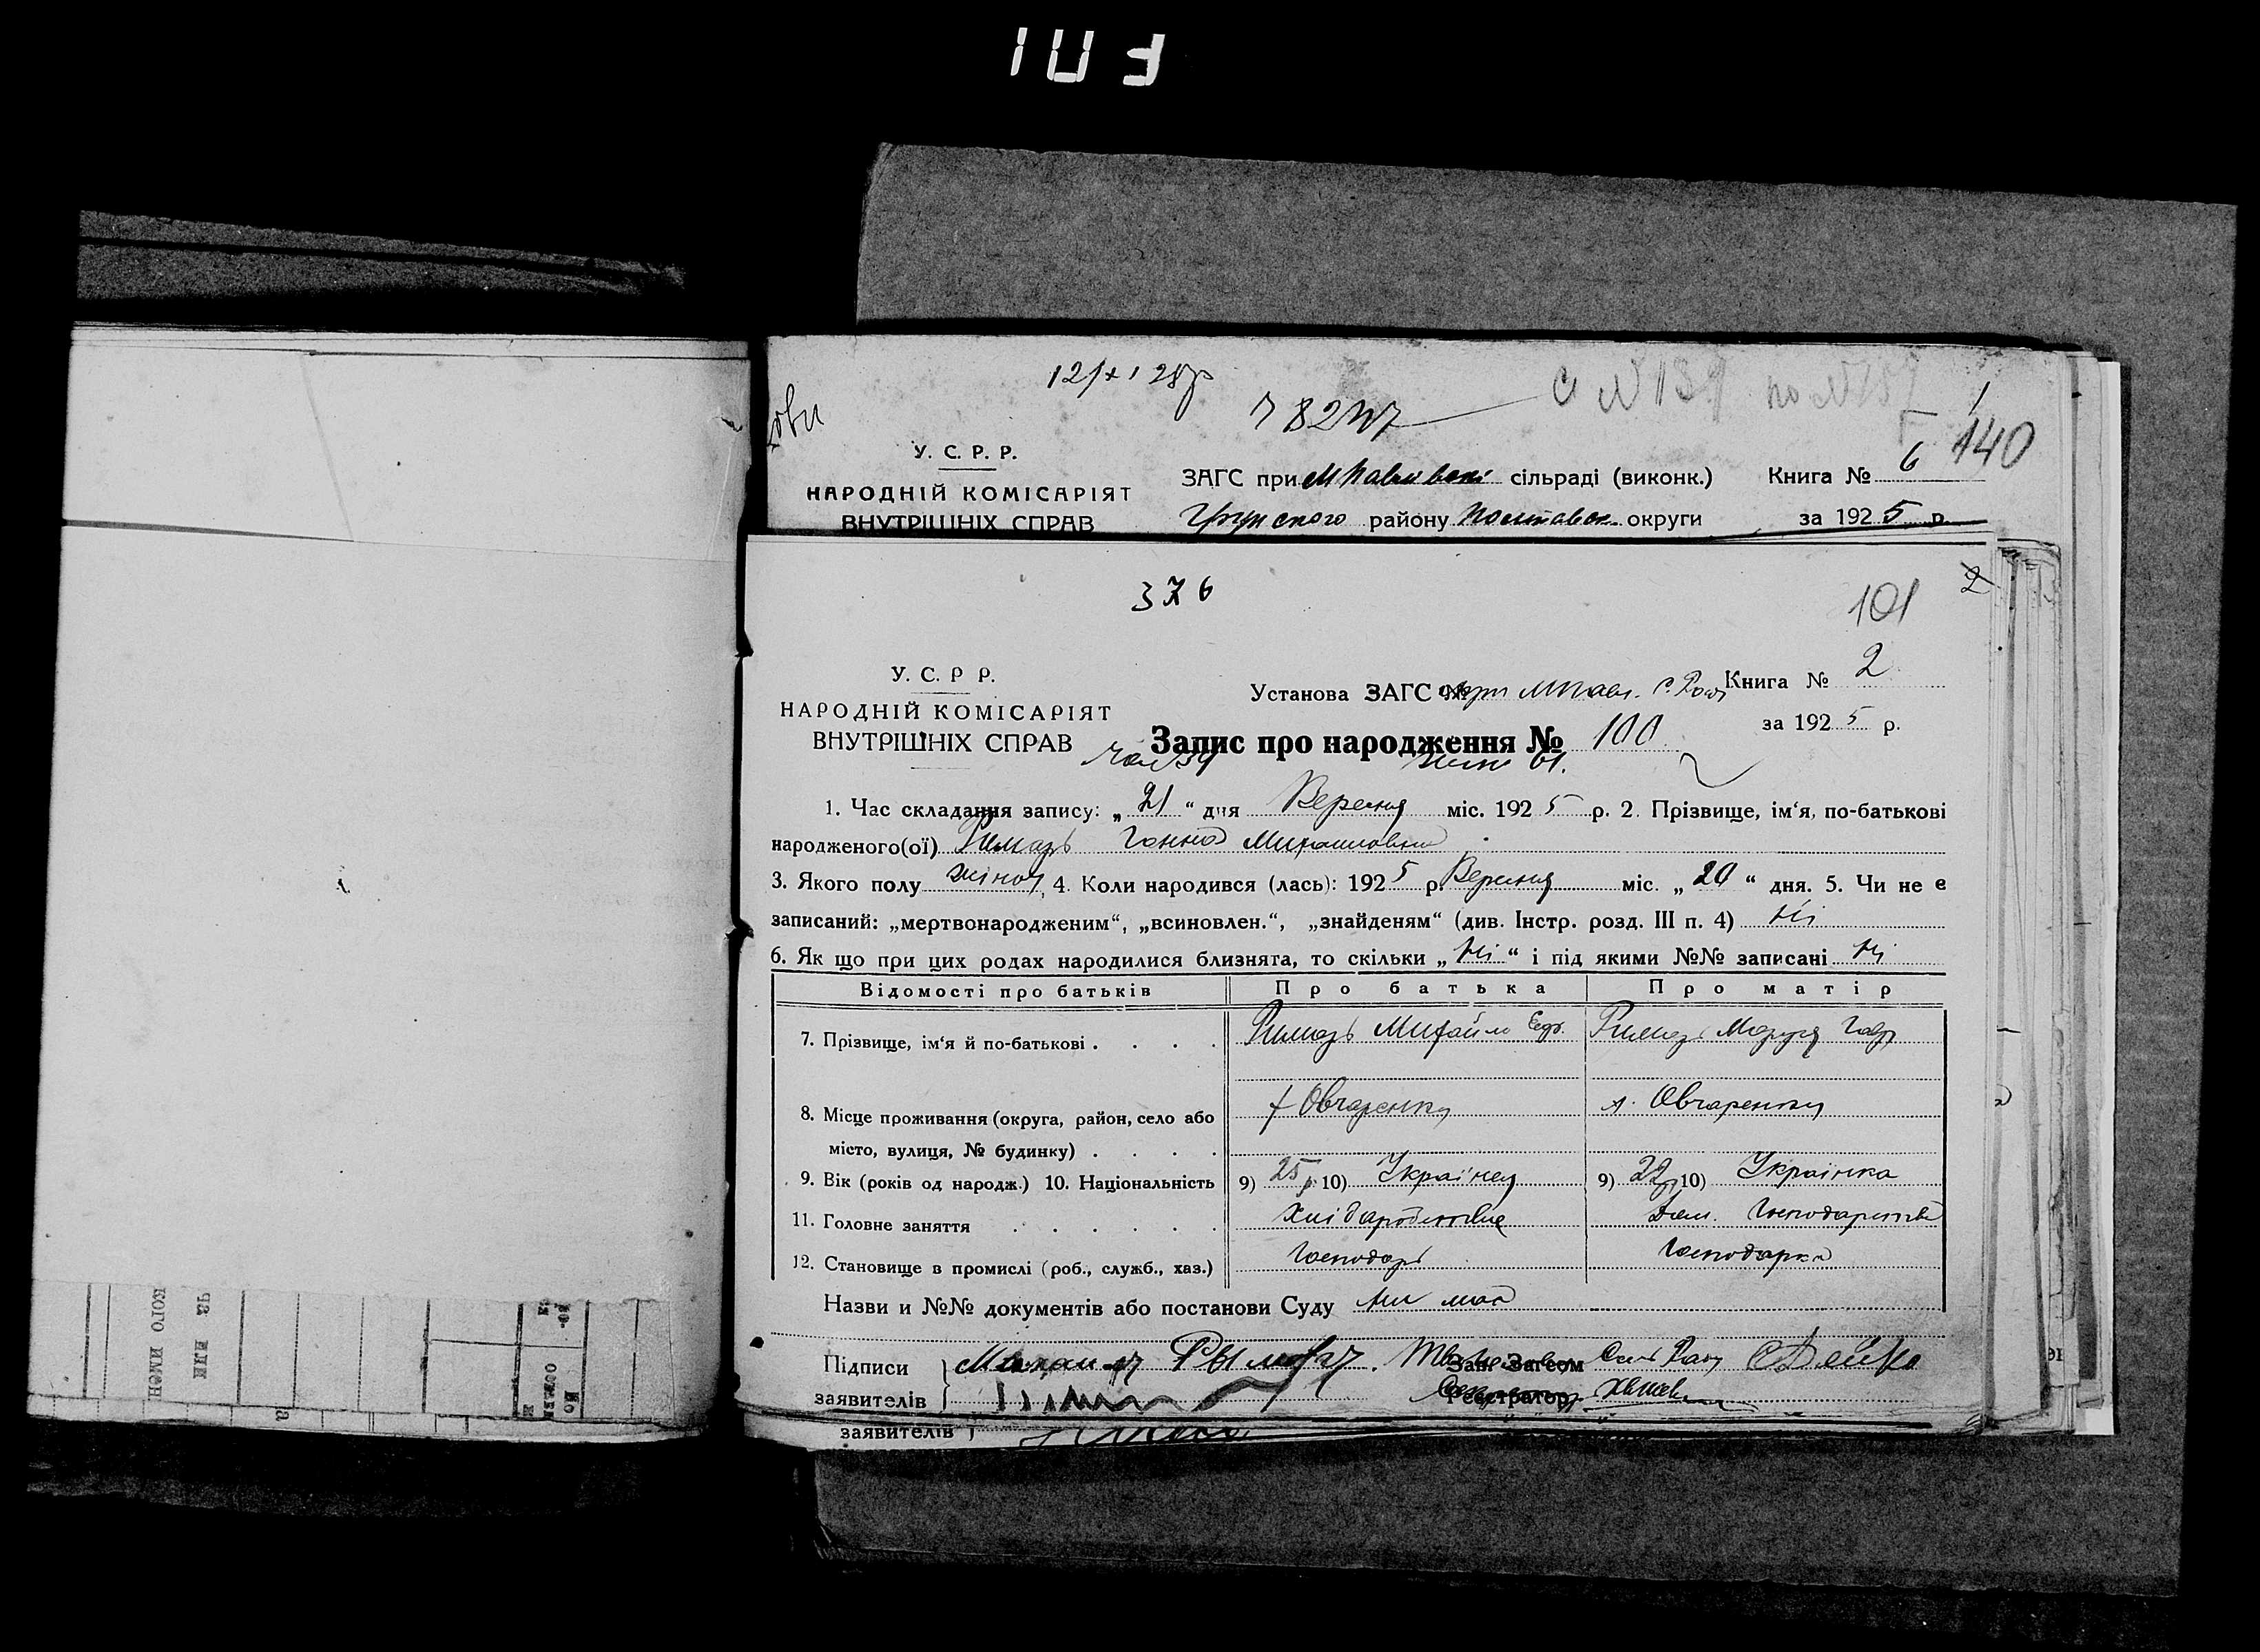 121х1 28р
782
с №139 по №157
1
140
У. С. Р. Р.
НАРОДНІЙ КОМІСАРІЯТ
ВНУТРІШНІХ СПРАВ
ЗАГС при М Павлівскі сільраді (виконк.)
району Полтавск. округи
Книга № 6
за 1925 р.
376
2
101
У. С. Р Р.
НАРОДНІЙ КОМІСАРІЯТ
ВНУТРІШНІХ СПРАВ
Установа ЗАГС № при МПавл. С. Раді
Книга № 2
за 1925 р.
Запис про народження № 100
61.
1. Час складання запису: „21“ дня Вересня міс. 1925 р. 2. Прізвище, ім‘я, по-батькові
народженого(ої) Римарь Ганна Михаиловна
3. Якого полу жіноч. 4. Коли народився (лась): 1925 р. Вересня міс. „20“ дня. 5. Чи не є
записаний: „мертвонародженим“, „всиновлен.“, „знайденям“ (див. Інстр. розд. III п. 4) Ні
6. Як що при цих родах народилися близнята, то скільки „Ні“ і під якими №№ записані Ні
Відомості про батьків Про батька Про матір
7. Прізвище, ім‘я й по-батькові . . . . Римарь Михайло Римарь Маруся Гавр
8. Місце проживання (округа, район, село або х Овчаренки х. Овчаренки
місто, вулиця, № будинку) . . . .
9. Вік (років од народж.) 10. Національність 9) 25 р. 10) Українец 9) 22 р 10) Українка
11. Головне заняття . . . . . . Хлібаробство Дом. Господарство
12. Становище в промислі (роб., служб., хаз.) Господарь Господарка
Назви и №№ документів або постанови Суду Ни має
Підписи Михаил Рымарь. Зав. Загсом Сіль Ради
заявителів Реєстратор
заявителів